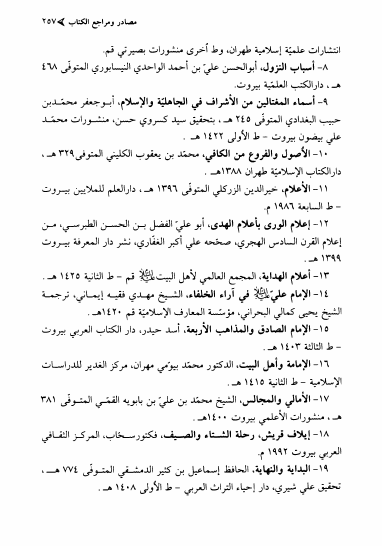 مصادر ومراجع الكتاب ◄ ٢٥٧
انتشارات علميّة إسلامية طهران، وط أخرى منشورات بصيرتي قم.
٨- أسباب النزول، أبوالحسن عليّ بن أحمد الواحدي النيسابوري المتوفّى ٤٦٨
هـ ، دارالكتب العلمية بيروت.
٩- أسماء المغتالين من الأشراف في الجاهليّة والإسلام، أبوجعفر محمّدبن
حبيب البغدادي المتوفّى ٢٤٥ هـ ، بتحقيق سيد كسروي حسن، منشورات محمّد
علي بيضون بيروت - ط الأولى ١٤٢٢ هـ .
١٠- الأصول والفروع من الكافي، محمّد بن يعقوب الكليني المتوفى٣٢٩ هـ ،
دارالكتاب الإسلاميّة طهران ١٣٨٨هـ .
١١- الأعلام، خيرالدين الزركلي المتوفّى ١٣٩٦ هـ ، دارالعلم للملايين بيروت
- ط السابعة ١٩٨٦ م.
١٢- إعلام الورى بأعلام الهدى، أبو عليّ الفضل بن الحسن الطبرسي، من
إعلام القرن السادس الهجري، صحّحه علي أكبر الغفّاري، نشر دار المعرفة بيروت
١٣٩٩ هـ .
١٣- أعلام الهداية، المجمع العالمي لأهل البيت قم - ط الثانية ١٤٢٥ هـ .
١٤- الإمام عليّ في آراء الخلفاء، الشيخ مهدي فقيه إيماني، ترجمة
الشيخ يحيى كمالي البحراني، مؤسّسة المعارف الإسلاميّة قم ١٤٢٠هـ .
١٥- الإمام الصادق والمذاهب الأربعة، أسد حيدر، دار الكتاب العربي بيروت
- ط الثالثة ١٤٠٣ هـ .
١٦- الإمامة وأهل البيت، الدكتور محمّد بيّومي مهران، مركز الغدير للدراسات
الإسلامية - ط الثانية ١٤١٥ هـ .
١٧- الأمالي والمجالس، الشيخ محمّد بن عليّ بن بابويه القمّي المتوفّى ٣٨١
هـ ، منشورات الأعلمي بيروت ١٤٠٠هـ .
١٨- إيلاف قريش، رحلة الشتاء والصيف، فكتورسحّاب، المركز الثقافي
العربي بيروت ١٩٩٢ م.
١٩- البداية والنهاية، الحافظ إسماعيل بن كثير الدمشقي المتوفّى ٧٧٤ هـ ،
تحقيق علي شيري، دار إحياء التراث العربي - ط الأولى ١٤٠٨ هـ .